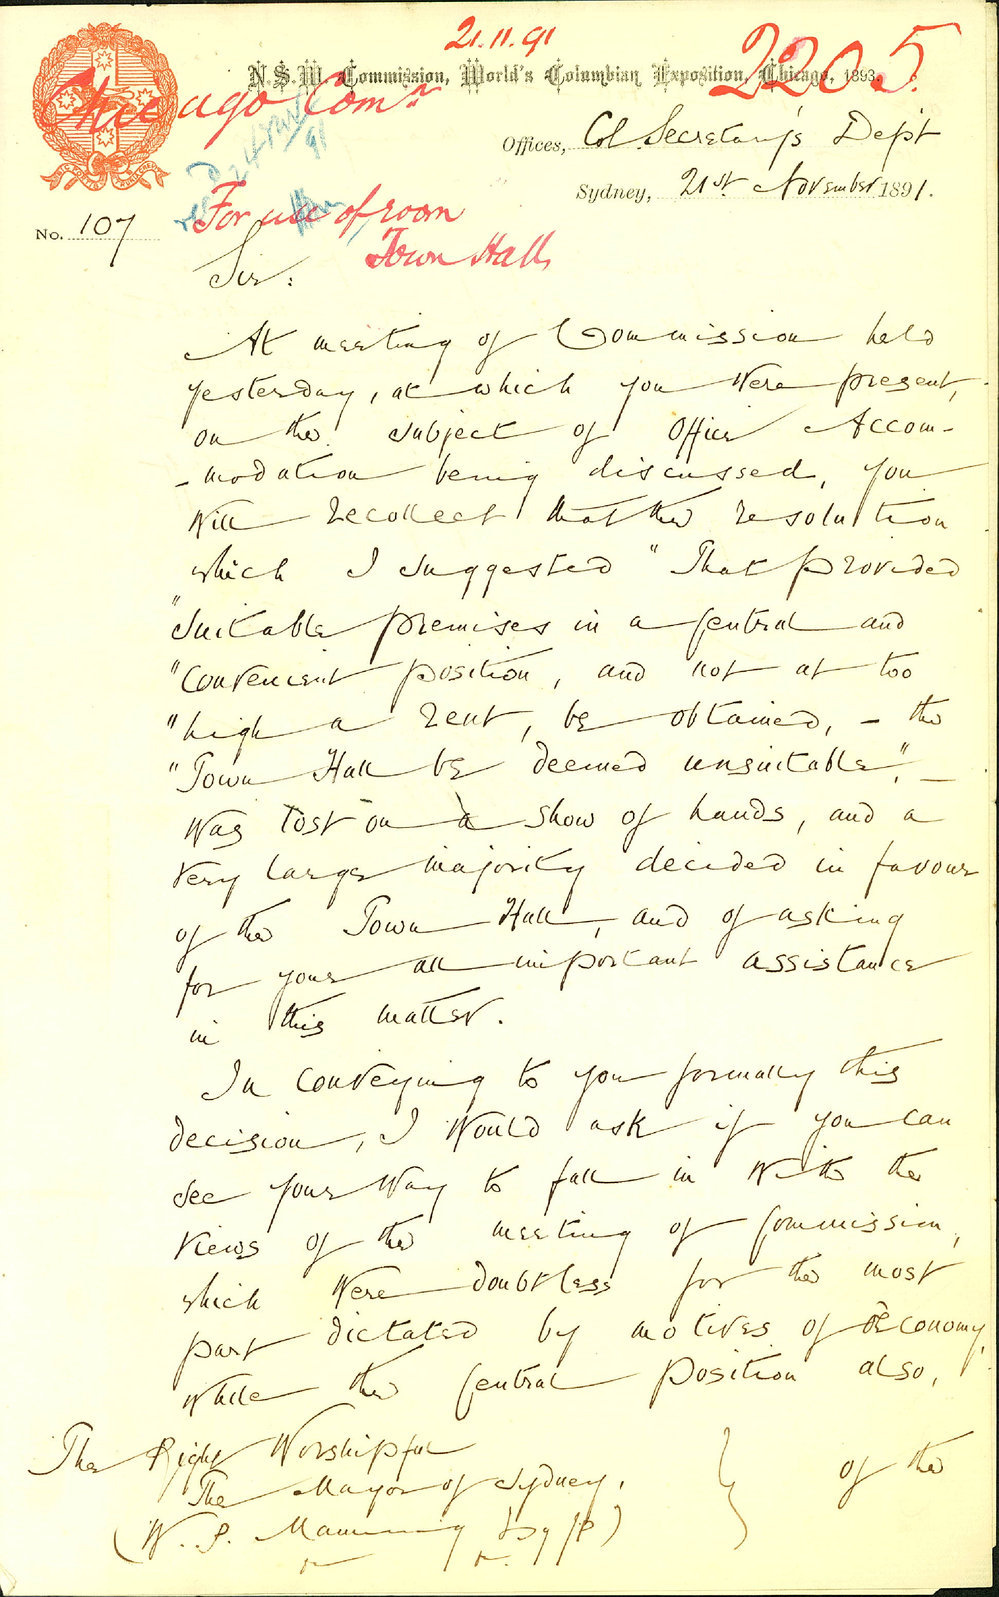 21.11.91
2205.
N.S.W. Commission, World's Columbian Exposition, Chicago, 1893.
Chicago Comn
Offices, Col. Secretary's Dept
Sydney, 21st November 1891.
No. 107
For use of room
Town Hall
Sir:
At meeting of Commission held
yesterday, at which you were present,
on the subject of Office Accom-
-modation being discussed, you
will recollect that the resolution
which I suggested "That provided
"suitable premises in a Central and
"convenient position, and not at too
"high a rent, be obtained, – the
"Town Hall be deemed unsuitable", –
was lost on a show of hands, and a
very large majority decided in favour
of the Town Hall, and of asking
for your all important assistance
in this matter.
In conveying to you formally this
decision, I would ask if you can
see your way to fall in with the
views of the meeting of Commission,
which were doubtless for the most
part dictated by motives of Œconomy,
while the Central position also,
The Right Worshipful
The Mayor of Sydney.
(W. P. Manning Esq JP)
of the